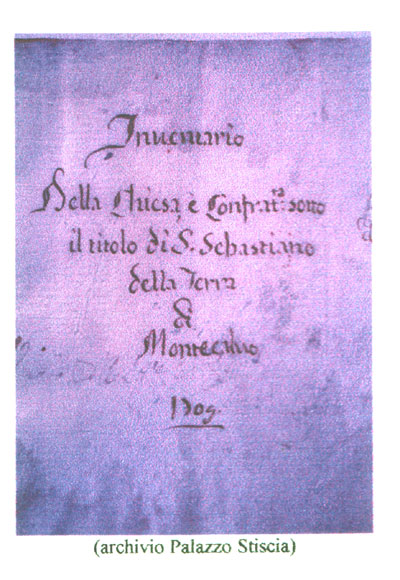 Inuentario
Della Chiesa, è Confrat.ta sotto
il titolo di S. Sebastiano
della Terra
di
Montecaluo
1709.
(archivio Palazzo Stiscia)